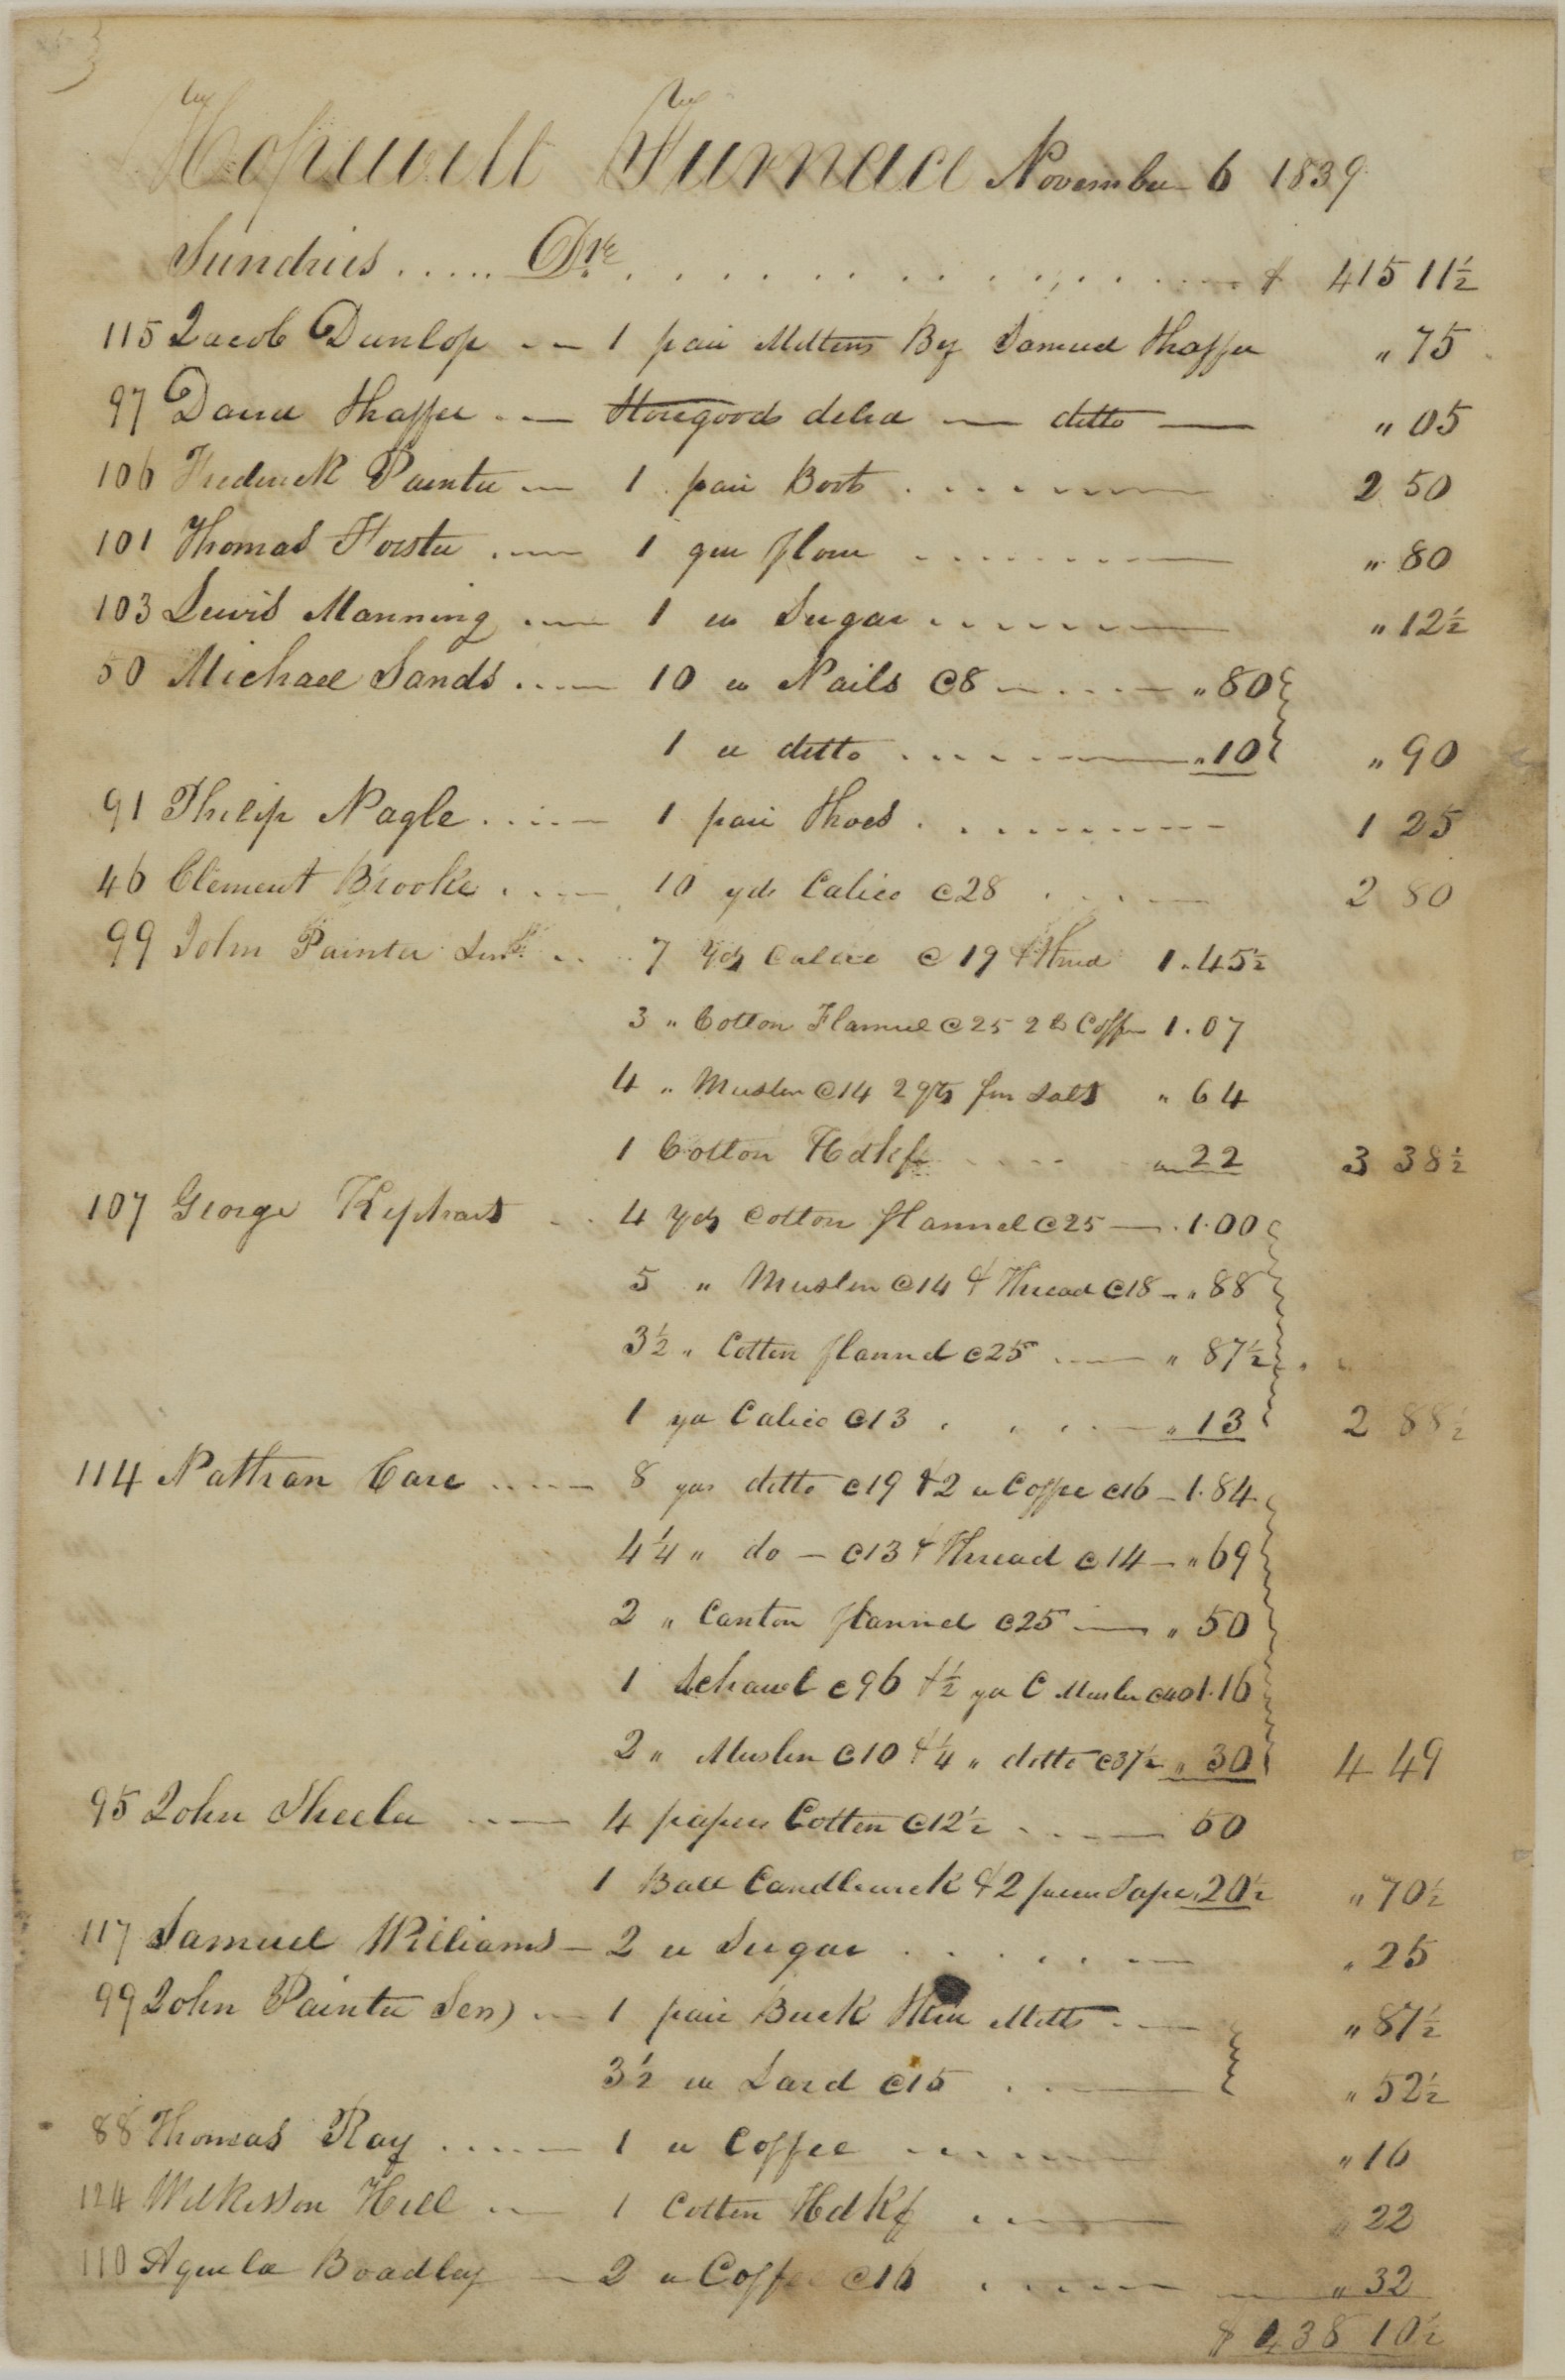 Hopewell Furnace November 6 1839
Sundries ..... Drs ............ $ 415 11½
115 Jacob Dunlop -- 1 pair Mittens By Samuel Shaffer " 75
97 David Shaffer -- Storegoods deld -- ditto -- " 05
106 Frederick Painter -- 1 pair Boots ........ 2 50
101 Thomas Forster -- 1 qur flour ........ " 80
103 Lewis Manning -- 1 lb Sugar ........ " 12½
50 Michael Sands -- 10 lb Nails @8 -- " 80
1 lb ditto ........ " 10 " 90
91 Philip Nagle ..... 1 pair Shoes ........ 1 25
46 Clement Brooke .... 10 yds Calico @28 .... 2 80
99 John Painter Senr .. 7 yds Calico @19 & Thred 1.45½
3 " Cotton Flannel @25 2 lb Coffee 1.07
4 " Muslin @14 2 qts fine Salt " 64
1 Cotton Hdkf .... " 22 3 38½
107 George Kephart .. 4 yds Cotton flannel @25 -- 1.00
5 " Muslin @14 & Thread @18 -- " 88
3½ " Cotton flannel @25 -- " 87½
1 yd Calico @13 .... " 13 2 88½
114 Nathan Care ..... 8 yds ditto @19 & 2 lb Coffee @16 -- 1.84
4¼ " do -- @13 & Thread @14 -- " 69
2 " Canton flannel @25 -- " 50
1 Schawl @96 & ½ yd C Muslin @40 1.16
2 " Muslin @10 & ¼ " ditto @37½ " 30 4 49
95 John Sheeler -- 4 papers Cotton @12½ -- 50
1 Ball Candlewick & 2 pieces Tape " 20½ " 70½
117 Samuel Williams -- 2 lb Sugar ...... " 25
99 John Painter Sen) -- 1 pair Buck Skin Mitts -- " 87½
3½ lb Lard @15 .... " 52½
88 Thomas Ray ..... 1 lb Coffee ...... " 16
124 Wilkesson Hill -- 1 Cotton Hdkf .... " 22
110 Aquila Boadley -- 2 lb Coffee @16 ..... " 32
$ 438 10½